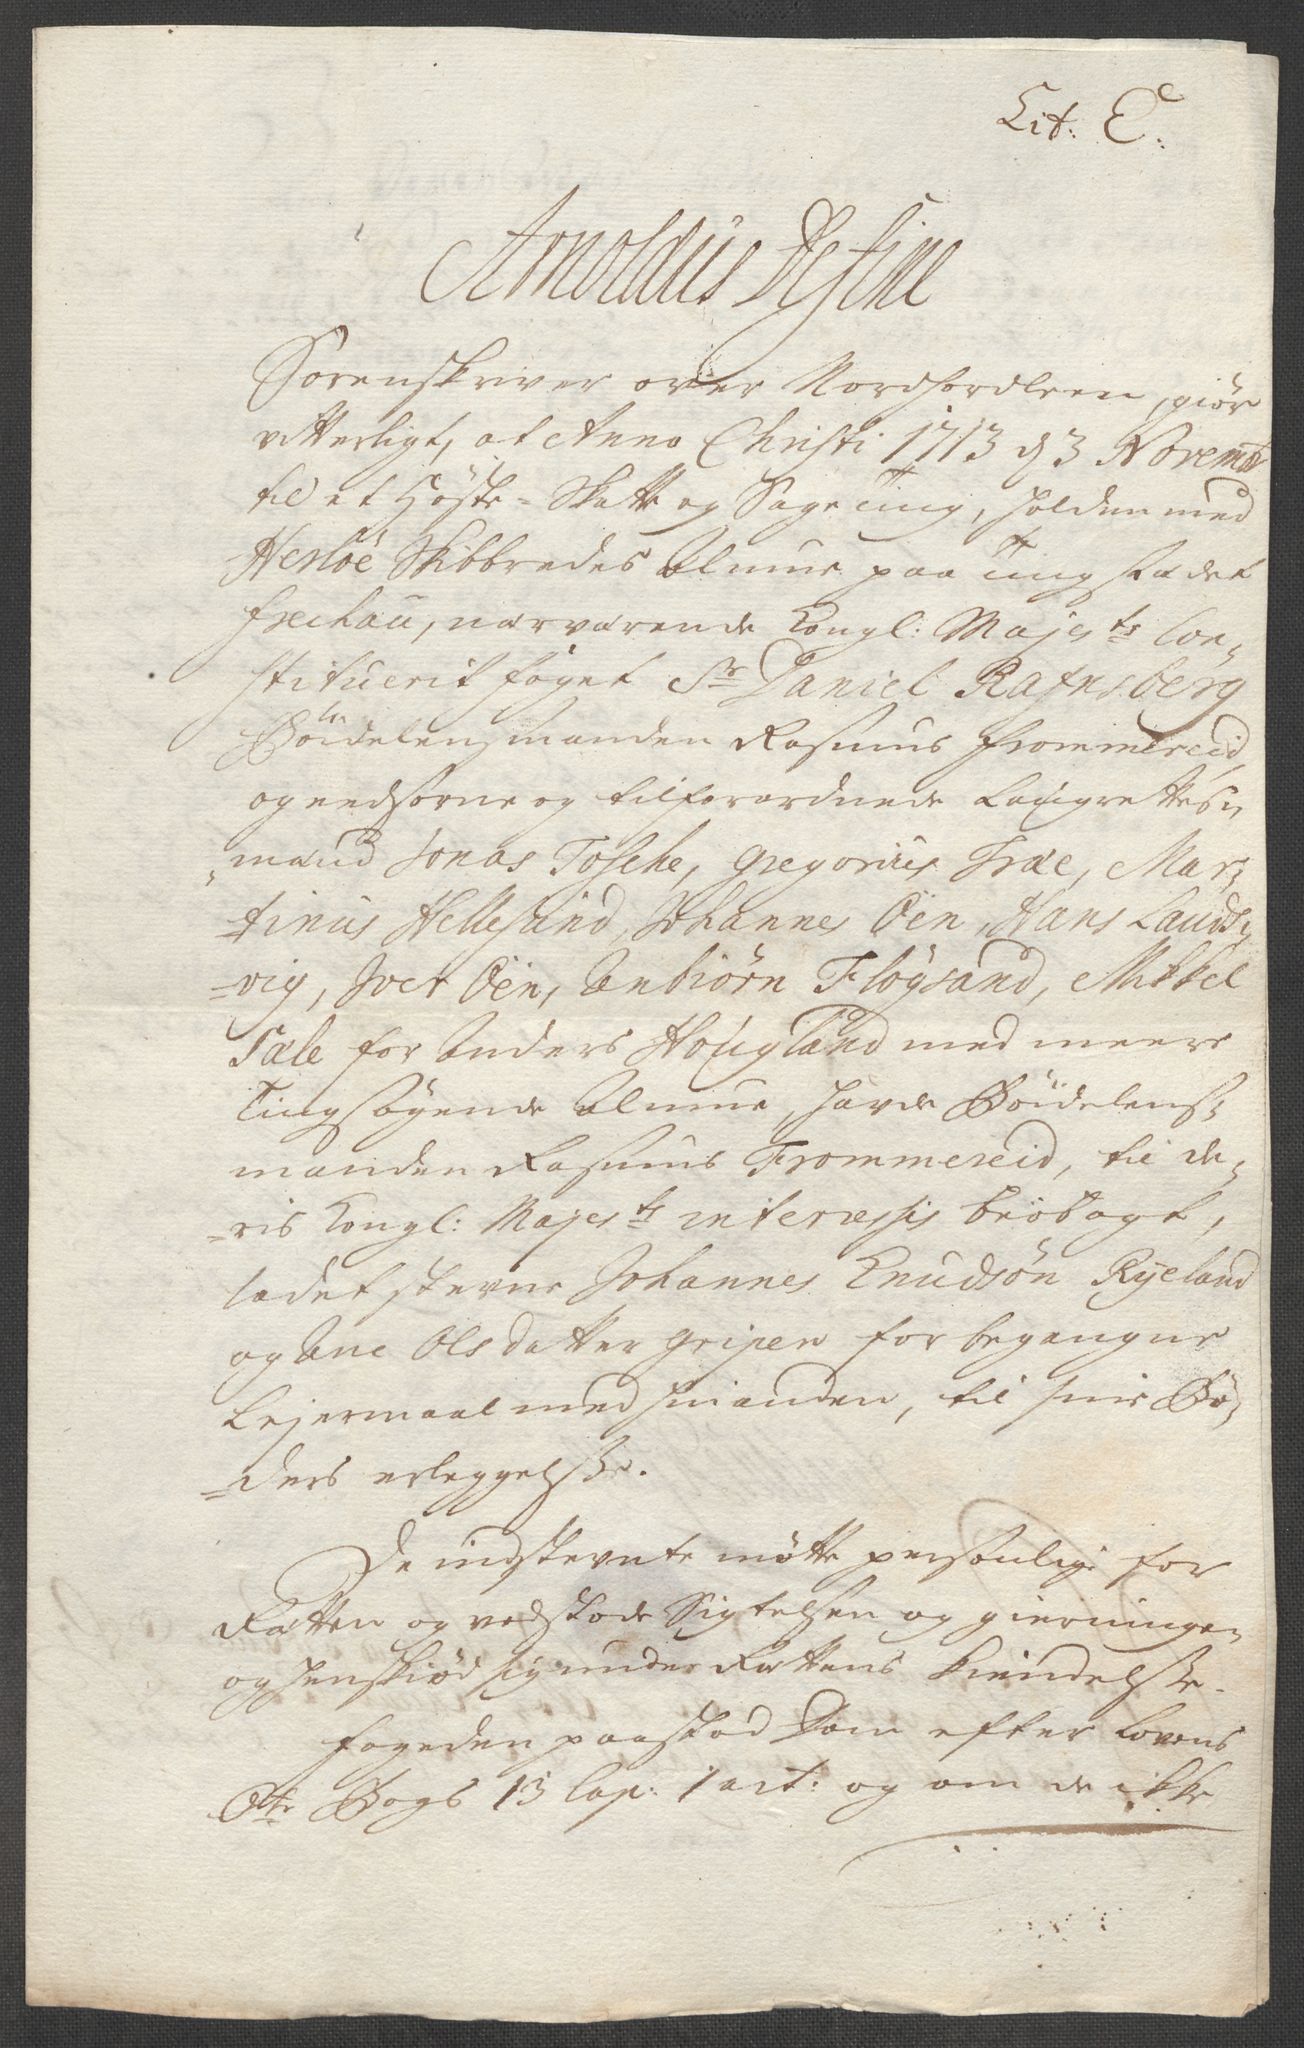 Lit: E.
Arnoldus De Fine
Sorenskriver over Nordhordleen, giör
vitterligt, at Anno Christi 1713 d 3 Novembr
til et Höste-Skatte og Sage Ting, holden med
Herlöe Skibbredes Almue paa Tingstædet
Frechau, nærværende Kongl: Majests Con-
stituerit foget Sr Daniel Rafnsberg
Böidelensmanden Rasmus Frommereid,
og eedsorne og tilforordnede Laugrettes-
mænd Jonas Tosche, Gregorius Træe, Mar-
tinus Hellesund, Johannes Öen, Hans Lands-
vig, Iver Öen, Anbiörn Flöysand, Mikkel
Sæle for Anders Hougland med meere
Tingsøgende Almue, havde Böidelens-
manden Rasmus Frommereid, til de-
ris Kongl: Majests interessis beobagt,
ladet stevne Johannes Knudsön Ryeland
og Ane Olsdatter Gripen for begangne
Lejermaal med hinanden, til sine Bö-
ders erleggelsse.
De indstevnte mötte personlig for
Rætten og vedstode Sigtelsen og gierningen
og henskiöd sig under Rettens Kiendelsse.
Fogeden paastod Dom efter Lovens
6te Bogs 13 Cap: 1 art: og om de ikke